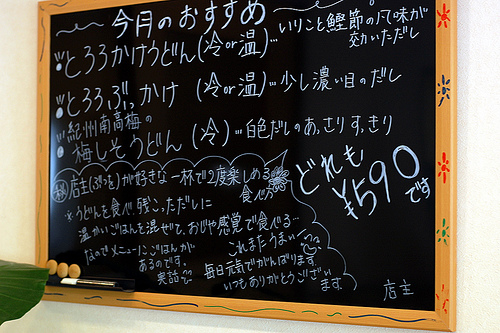 今月のおすすめ
とろろかけうどん(冷or温)…いりこと鰹節の風味が
効いただし
とろろぶっかけ (冷or温)…少し濃い目のだし
紀州南高梅の
梅しそうどん (冷)…白色だしのあっさりすっきり
どれも
¥590です
店主(ぶつを)が好きな一杯で2度楽しめる
食べ方
※うどんを食べ、残こっただしに
温かいごはんを混ぜて、おじや感覚で食べる…
これまたうまい
なのでメニューにごはんが
あるのです。
実話
毎日元気でがんばります
いつもありがとうござい
ます
店主